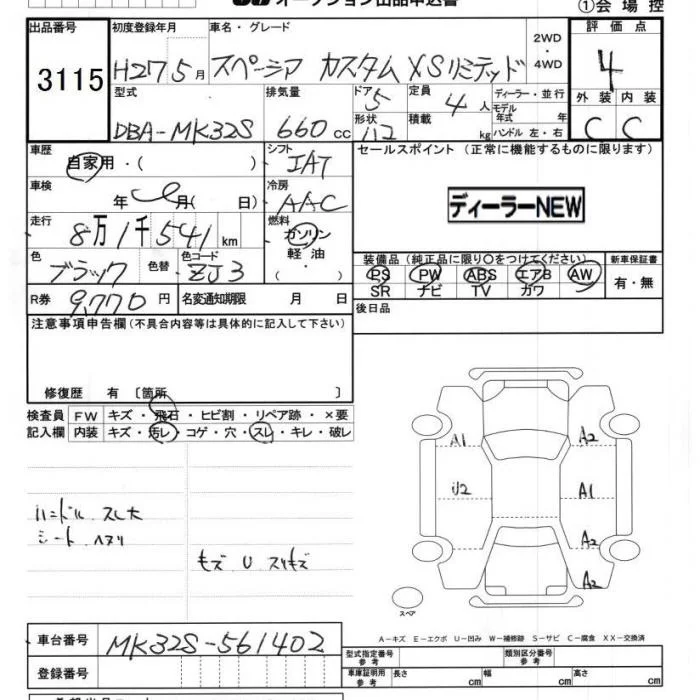 オークション出品申込書
①会場控
出品番号 初度登録年月 車名・グレード 2WD・4WD 評価点
3115 H27 5月 スペーシア カスタム XSリミテッド 4
型式 排気量 ドア 定員 ディーラー・並行 外装 内装
5 4人 モデル年式 年
形状 積載 ハンドル 左・右
DBA-MK32S 660cc kg C C
車歴 シフト セールスポイント (正常に機能するものに限ります)
自家用・( ) IAT
車検 冷房
年 月( 日) AAC ディーラーNEW
走行 燃料
8万1千541km ガソリン・軽油・( )
色 色替 色コード 装備品 (純正品に限り○をつけてください) 新車保証書
ブラック ZJ3 PS PW ABS エアB AW 有・無
SR ナビ TV カワ
R券 9,770円 名変通知期限 月 日 後日品
注意事項申告欄 (不具合内容等は具体的に記入して下さい)
修復歴 有 〔箇所 〕
検査員 FW キズ・飛石・ヒビ割・リペア跡・×要
記入欄 内装 キズ・汚レ・コゲ・穴・スレ・キレ・破レ
A1 A2
U2 A1
ハンドル スレ大
A2
シート ヘタリ
モズ U スリキズ
A2
スペア
A−キズ E−エクボ U−凹み W−補修跡 S−サビ C−腐食 XX−交換済
車台番号 MK32S-561402
型式指定番号 参考 類別区分番号 参考
登録番号 車庫証明用 参考 長さ cm 幅 cm 高さ cm